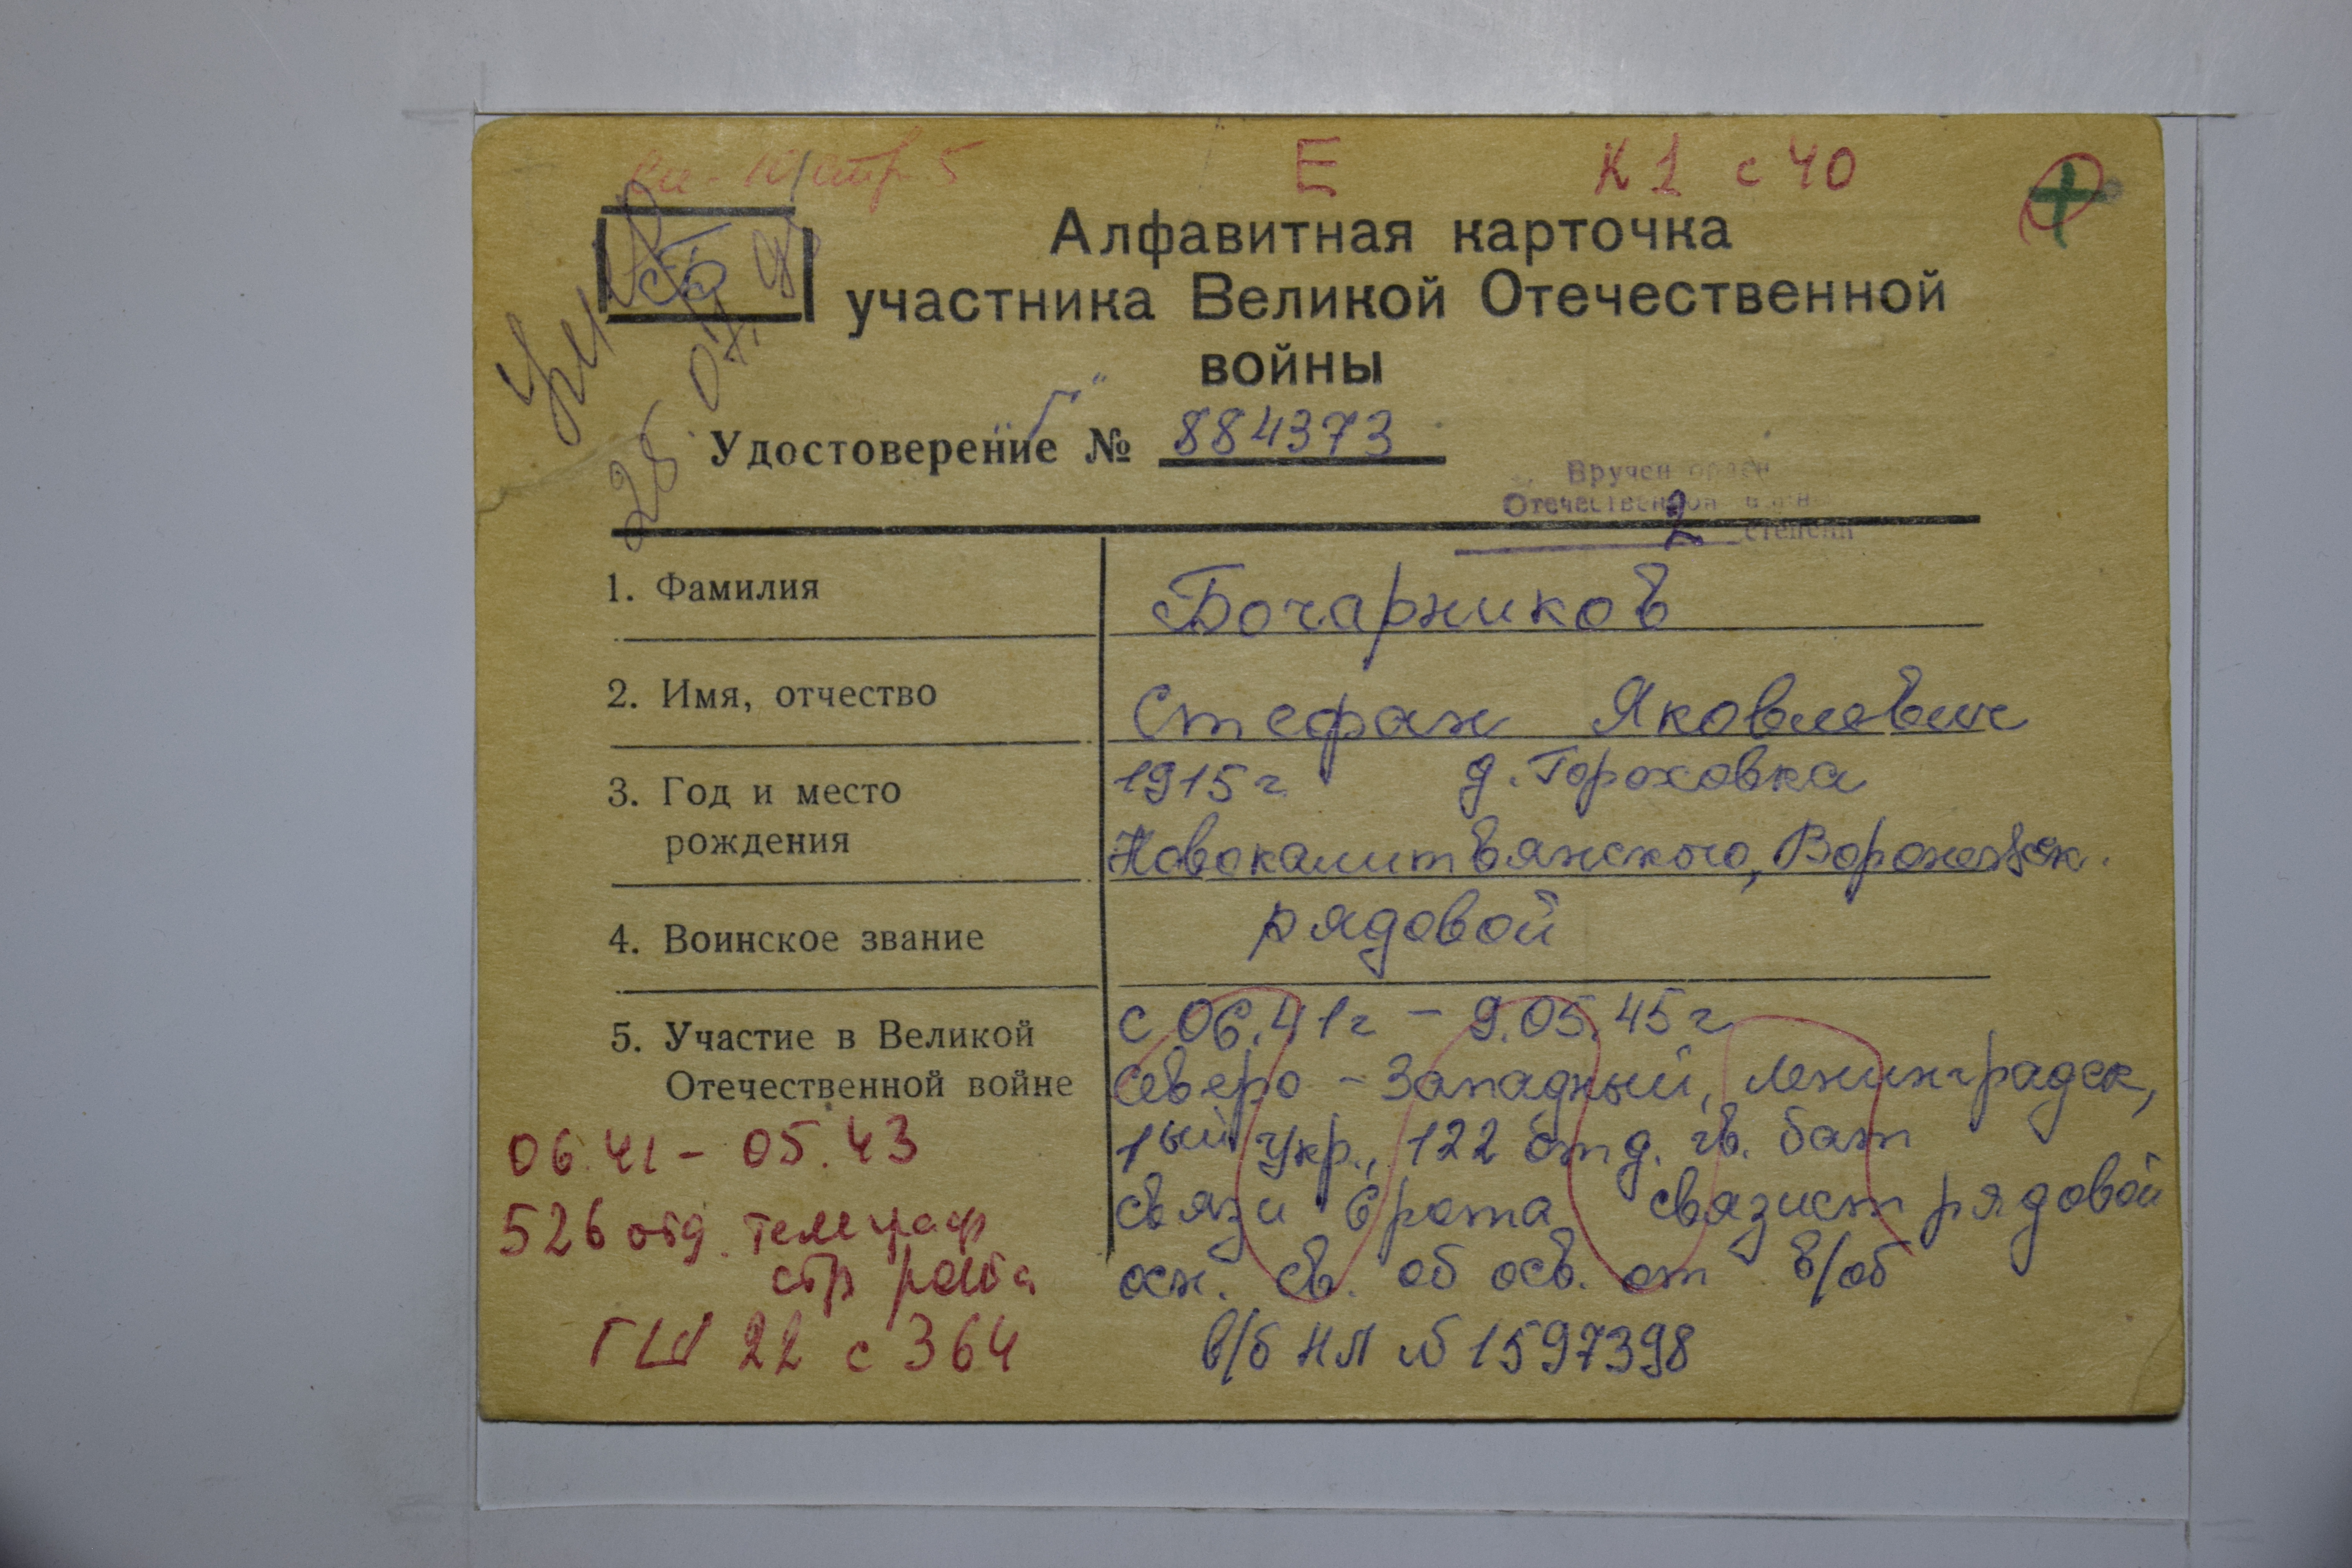 Е К 1 с 40
Алфавитная карточка
участника Великой Отечественной
войны
Умер
28 07. 98
„Г"
Удостоверение № 884373
Вручен орден
Отечественной войны
2 степени
1. Фамилия Бочарников
2. Имя, отчество Стефан Яковлевич
3. Год и место 1915 г д. Гороховка
рождения Новокалитвянского, Воронежск.
4. Воинское звание рядовой
5. Участие в Великой с 06.41г – 9.05.45г
Отечественной войне Северо – Западный, Ленинградск,
06.41 – 05.43 1ый Укр., 122 отд. гв. бат
526 отд. телеграф связи 6 рота связист рядовой
стр рота осн. св. об осв. от в/об
ГШ 22 с 364 в/б НЛ № 1597398